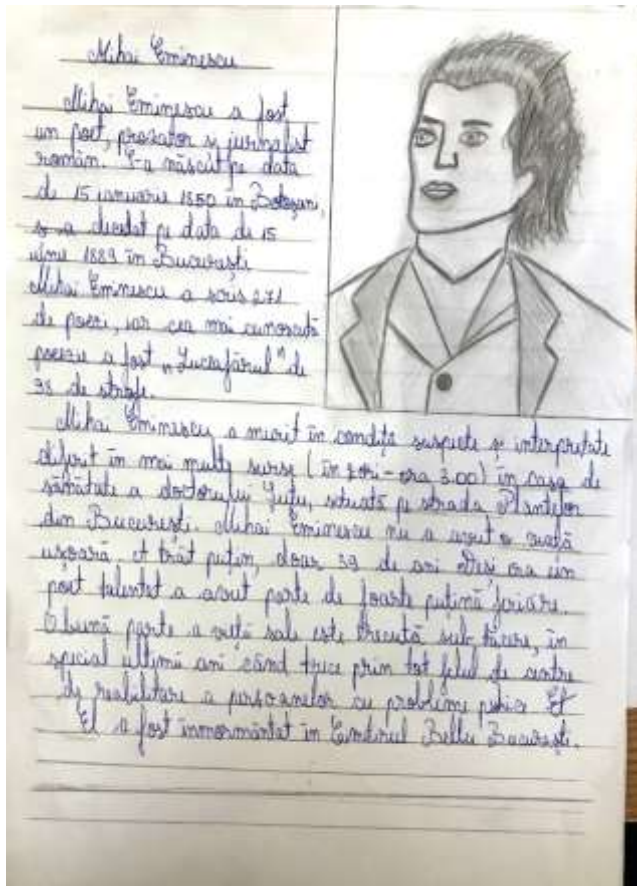 Mihai Eminescu
Mihai Eminescu a fost
un poet, prozator și jurnalist
român. S-a născut pe data
de 15 ianuarie 1850 în Botoșani,
și a decedat pe data de 15
iunie 1889 în București.
Mihai Eminescu a scris 271
de poezi, iar cea mai cunoscută
poezie a fost „Luceafărul" de
98 de strofe.
Mihai Eminescu a murit în condiți suspecte și interpretate
diferit în mai multe surse (în zori-ora 3.00) în casa de
sănătate a doctorului Șuțu, situată pe strada Plantelor
din București. Mihai Eminescu nu a avut o viață
ușoară. A trăt puțin, doar 39 de ani. Deși era un
poet talentat a avut parte de foarte puțină fericire.
O bună parte a vieți sale este trecută sub tăcere, în
special ultimii ani când trece prin tot felul de centre
de reabilitare a persoanelor cu probleme psihice. El
El a fost înmormântat în Cimitirul Bellu București.